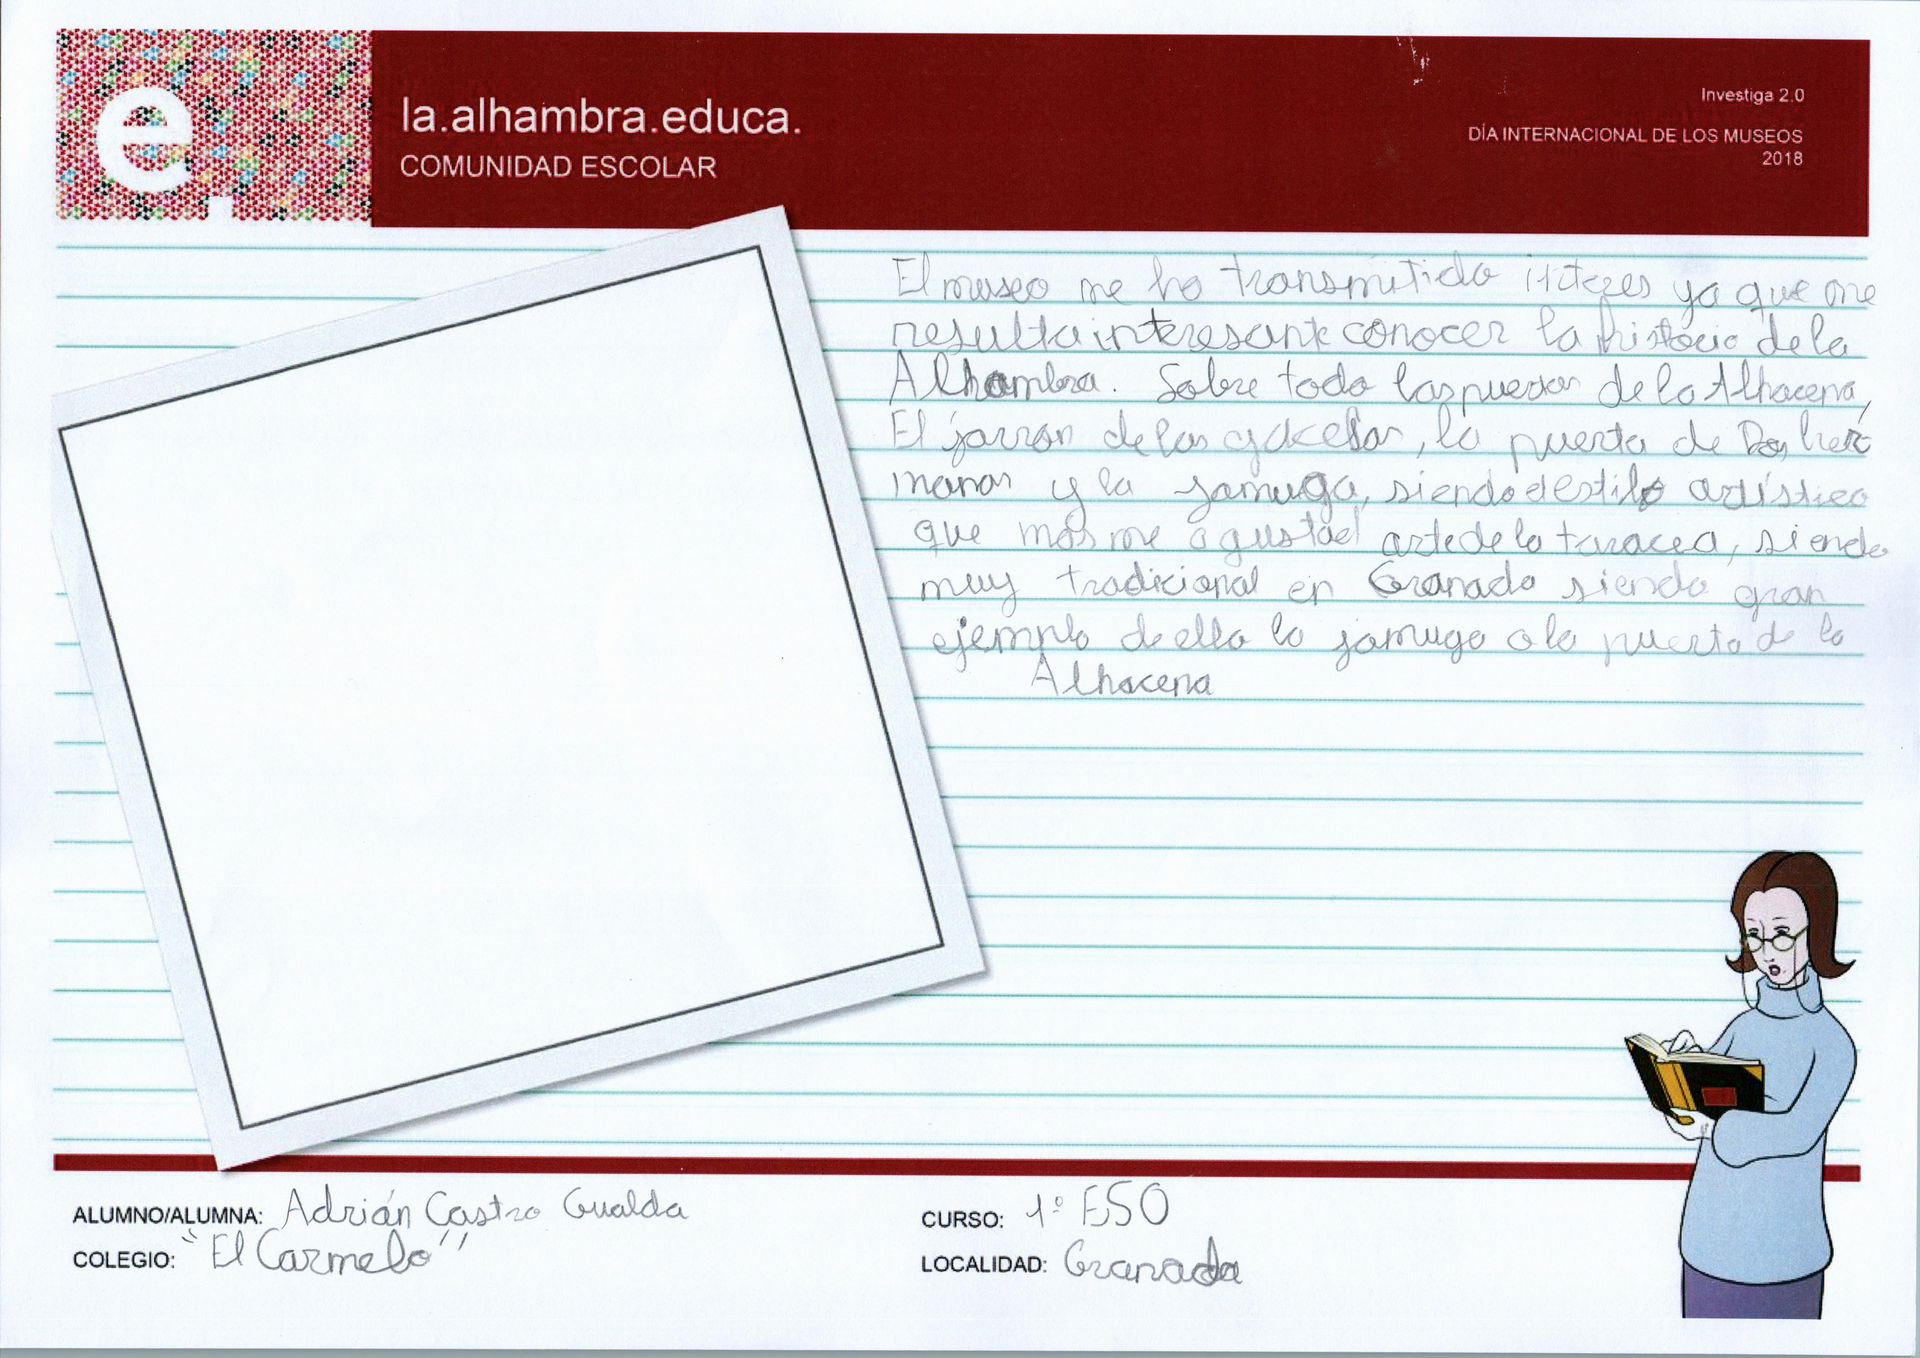 la.alhambra.educa.
COMUNIDAD ESCOLAR
Investiga 2.0
DÍA INTERNACIONAL DE LOS MUSEOS
2018
El museo me ha transmitido interes ya que me
resulta interesante conocer la historia de la
Alhambra. Sobre todo las de la Alhacena,
El jarron de las gacelas, la puerta de Dos her
manas y la jamuga, siendo el estilo artístico
que más me a gustado el arte de la taracea, siendo
muy tradicional en Granada siendo gran
ejemplo de ello la jamuga o la puerta de la
Alhacena
ALUMNO/ALUMNA: Adrián Castro Gualda
COLEGIO: "El Carmelo"
CURSO: 1º ESO
LOCALIDAD: Granada